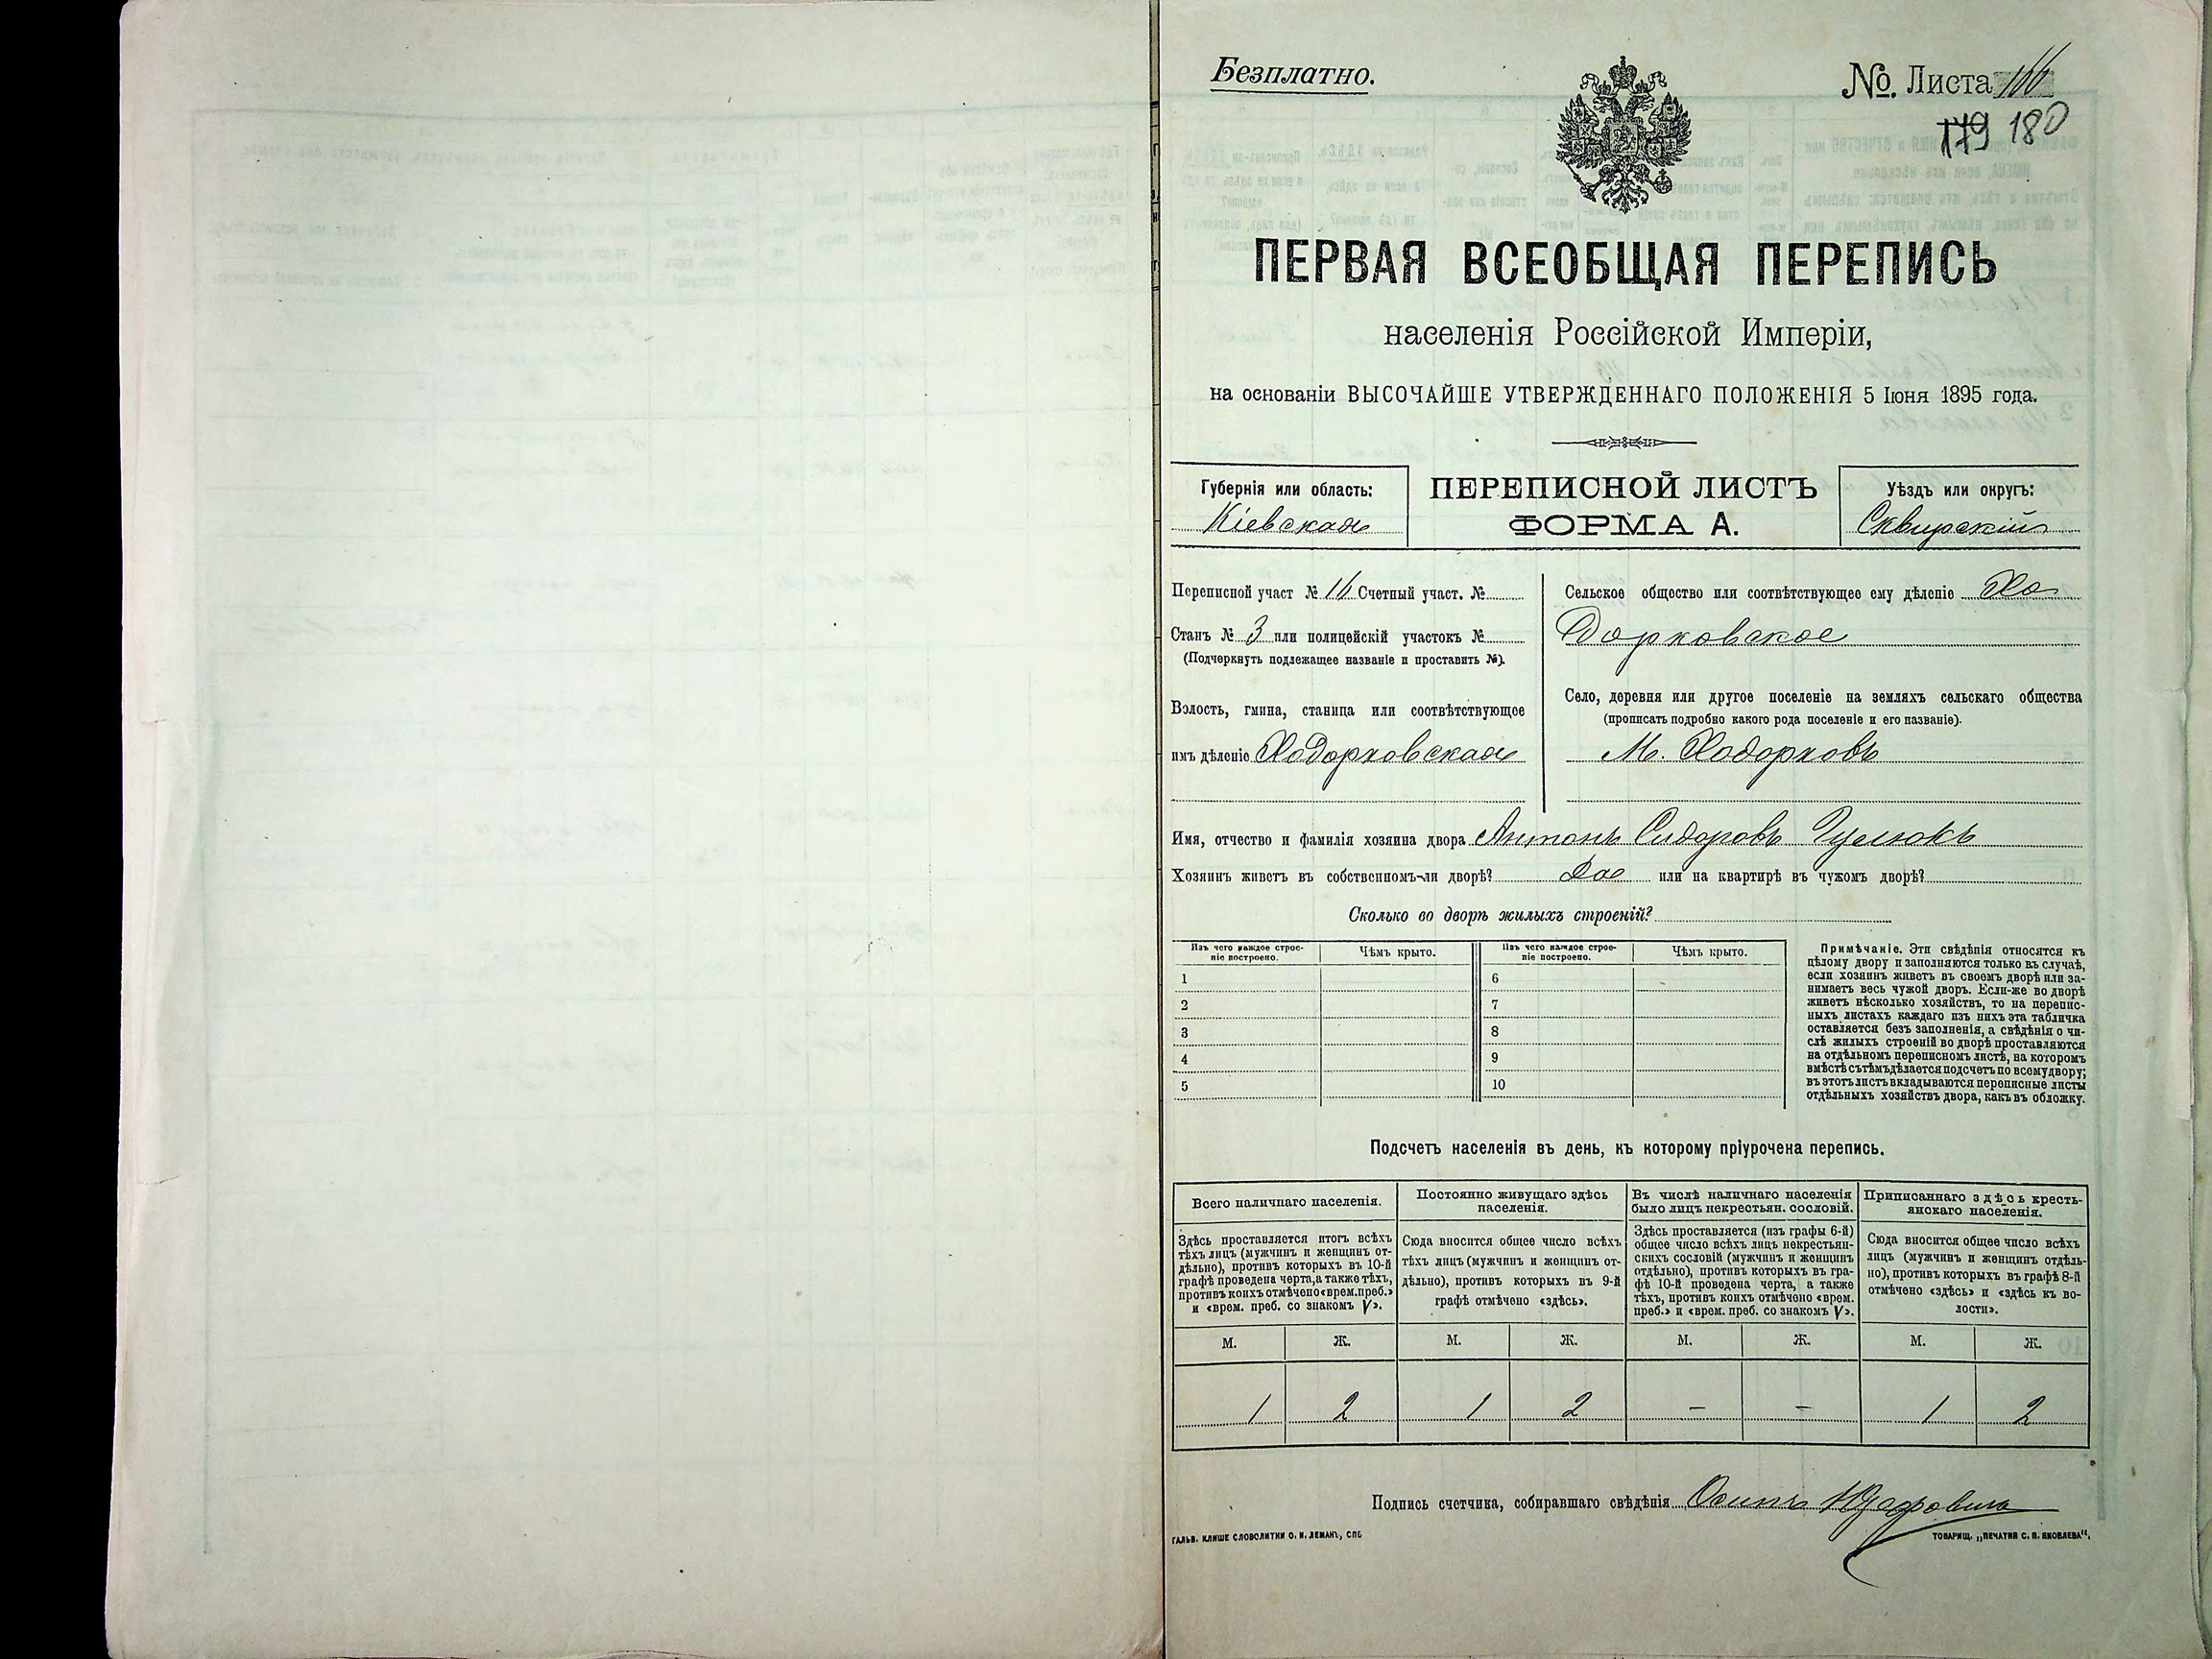 Безплатно.
№ Листа 166
179 180
ПЕРВАЯ ВСЕОБЩАЯ ПЕРЕПИСЬ
населенія Россійской Имперіи,
на основаніи ВЫСОЧАЙШЕ УТВЕРЖДЕННАГО ПОЛОЖЕНІЯ 5 Іюня 1895 года.
Губернія или область:
Кіевская
ПЕРЕПИСНОЙ ЛИСТЪ
ФОРМА А.
Уѣздъ или округъ:
Сквирскій
Переписной участ № 16 Счетный участ. №
Станъ № 3 или полицейскій участокъ №
(Подчеркнуть подлежащее названіе и проставить №).
Волость, гмина, станица или соотвѣтствующее
имъ дѣленіе Ходорковская
Сельское общество или соотвѣтствующее ему дѣленіе Хо
дорковское
Село, деревня или другое поселеніе на земляхъ сельскаго общества
(прописать подробно какого рода поселеніе и его названіе).
М. Ходорковъ
Имя, отчество и фамилія хозяина двора Антонъ Сидоровъ Гулюкъ
Хозяинъ живетъ въ собственномъ-ли дворѣ? Да или на квартирѣ въ чужомъ дворѣ?
Сколько во дворѣ жилыхъ строеній?
Изъ чего каждое строе-
ніе построено.
Чѣмъ крыто.
Изъ чего каждое строе-
ніе построено.
Чѣмъ крыто.
1 6
2 7
3 8
4 9
5 10
Примѣчаніе. Эти свѣдѣнія относятся къ
цѣлому двору и заполняются только въ случаѣ,
если хозяинъ живетъ въ своемъ дворѣ или за-
нимаетъ весь чужой дворъ. Если-же во дворѣ
живетъ нѣсколько хозяйствъ, то на перепис-
ныхъ листахъ каждаго изъ нихъ эта табличка
оставляется безъ заполненія, а свѣдѣнія о чи-
слѣ жилыхъ строеній во дворѣ проставляются
на отдѣльномъ переписномъ листѣ, на которомъ
вмѣстѣ съ тѣмъ дѣлается подсчетъ по всему двору;
въ этотъ листъ вкладываются переписные листы
отдѣльныхъ хозяйствъ двора, какъ въ обложку.
Подсчетъ населенія въ день, къ которому пріурочена перепись.
Всего наличнаго населенія.
Здѣсь проставляется итогъ всѣхъ
тѣхъ лицъ (мужчинъ и женщинъ от-
дѣльно), противъ которыхъ въ 10-й
графѣ проведена черта, а также тѣхъ,
противъ коихъ отмѣчено «врем. преб.»
и «врем. преб. со знакомъ V».
Постоянно живущаго здѣсь
населенія.
Сюда вносится общее число всѣхъ
тѣхъ лицъ (мужчинъ и женщинъ от-
дѣльно), противъ которыхъ въ 9-й
графѣ отмѣчено «здѣсь».
Въ числѣ наличнаго населенія
было лицъ некрестьян. сословій.
Здѣсь проставляется (изъ графы 6-й)
общее число всѣхъ лицъ некрестьян-
скихъ сословій (мужчинъ и женщинъ
отдѣльно), противъ которыхъ въ гра-
фѣ 10-й проведена черта, а также
тѣхъ, противъ коихъ отмѣчено «врем.
преб.» и «врем. преб. со знакомъ V».
Приписаннаго здѣсь кресть-
янскаго населенія.
Сюда вносится общее число всѣхъ
лицъ (мужчинъ и женщинъ отдѣль-
но), противъ которыхъ въ графѣ 8-й
отмѣчено «здѣсь» и «здѣсь къ во-
лости».
М. Ж. М. Ж. М. Ж. М. Ж.
1 2 1 2 – – 1 2
Подпись счетчика, собиравшаго свѣдѣнія Осипъ
ГАЛЬВ. КЛИШЕ СЛОВОЛИТНИ О. И. ЛЕМАНЪ, СПБ
ТОВАРИЩ. „ПЕЧАТНЯ С. П. ЯКОВЛЕВА“.